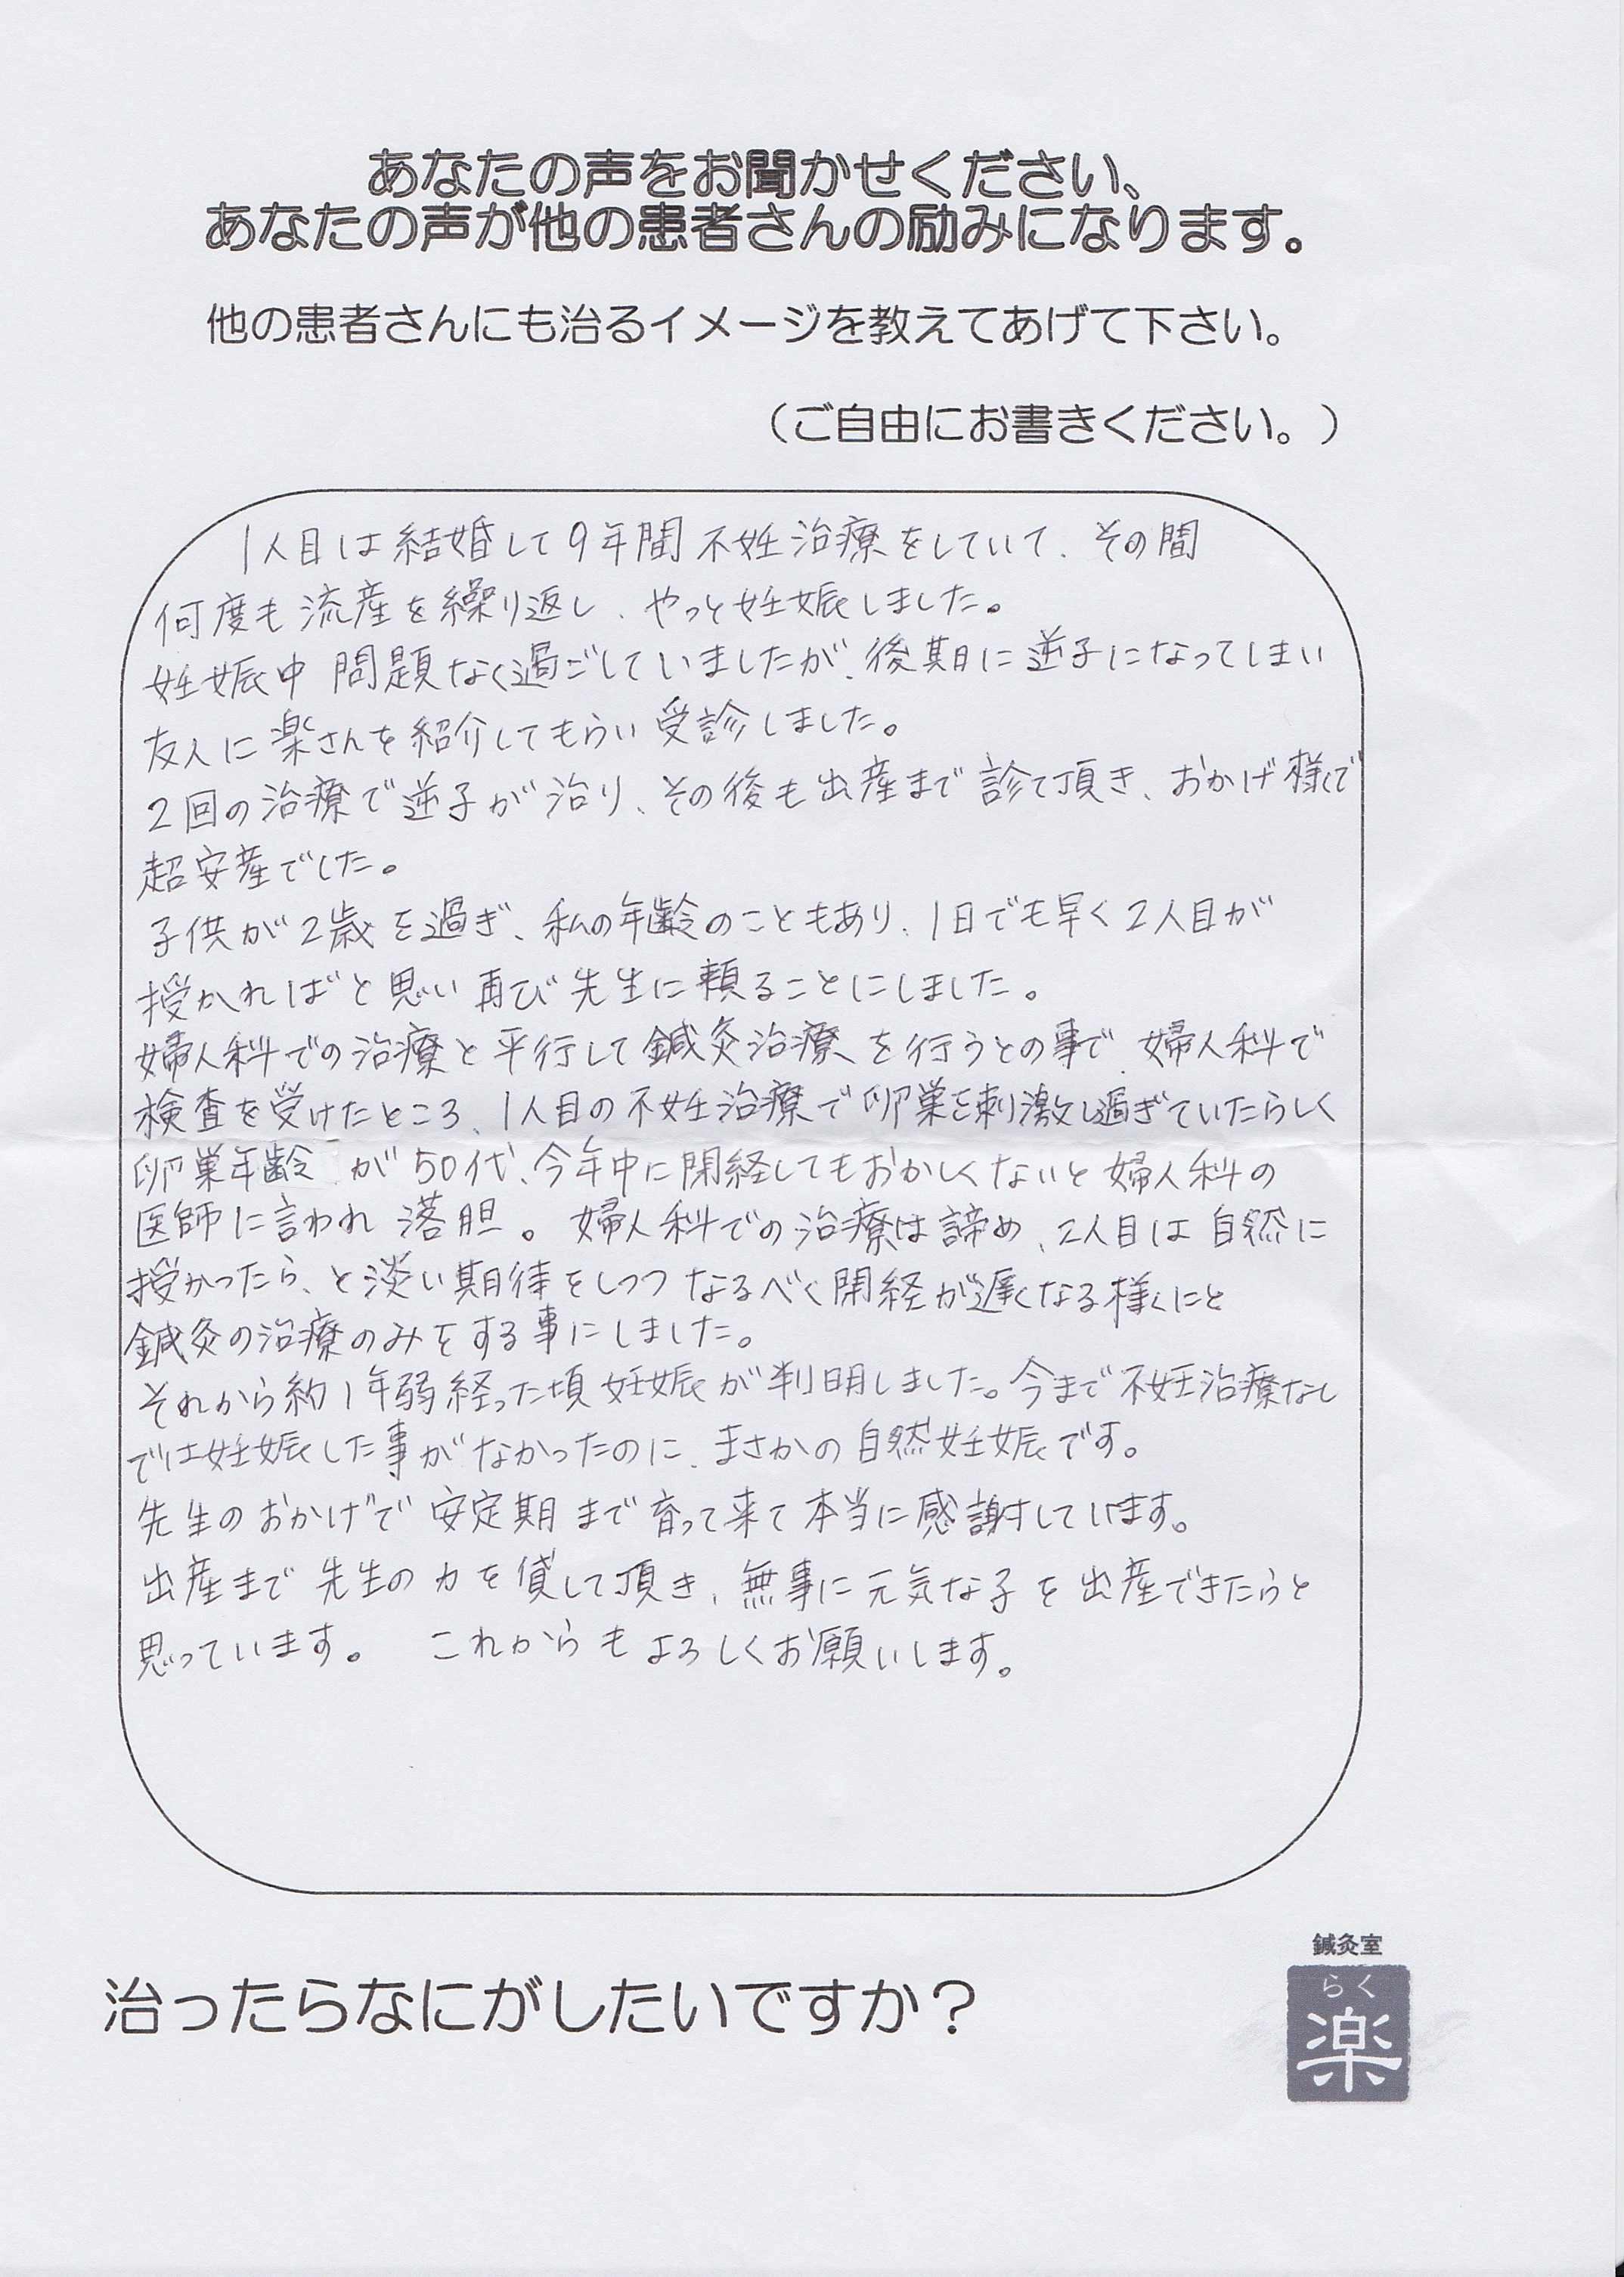 あなたの声をお聞かせください、
あなたの声が他の患者さんの励みになります。
他の患者さんにも治るイメージを教えてあげて下さい。
（ご自由にお書きください。）
1人目は結婚して9年間不妊治療をしていて、その間
何度も流産を繰り返し、やっと妊娠しました。
妊娠中 問題なく過ごしていましたが、後期に逆子になってしまい
友人に楽さんを紹介してもらい受診しました。
2回の治療で逆子が治り、その後も出産まで診て頂き、おかげ様で
超安産でした。
子供が2歳を過ぎ、私の年齢のこともあり、1日でも早く2人目が
授かればと思い再び先生に頼ることにしました。
婦人科での治療と平行して鍼灸治療を行うとの事で、婦人科で
検査を受けたところ、1人目の不妊治療で卵巣を刺激し過ぎていたらしく
卵巣年齢が50代、今年中に閉経してもおかしくないと婦人科の
医師に言われ落胆。婦人科での治療は諦め、2人目は自然に
授かったら、と淡い期待をしつつなるべく閉経が遅くなる様にと
鍼灸の治療のみをする事にしました。
それから約1年弱経った頃妊娠が判明しました。今まで不妊治療なし
では妊娠した事がなかったのに、まさかの自然妊娠です。
先生のおかげで安定期まで育って来て本当に感謝しています。
出産まで先生の力を貸して頂き、無事に元気な子を出産できたらと
思っています。 これからもよろしくお願いします。
治ったらなにがしたいですか？
鍼灸室
らく
楽